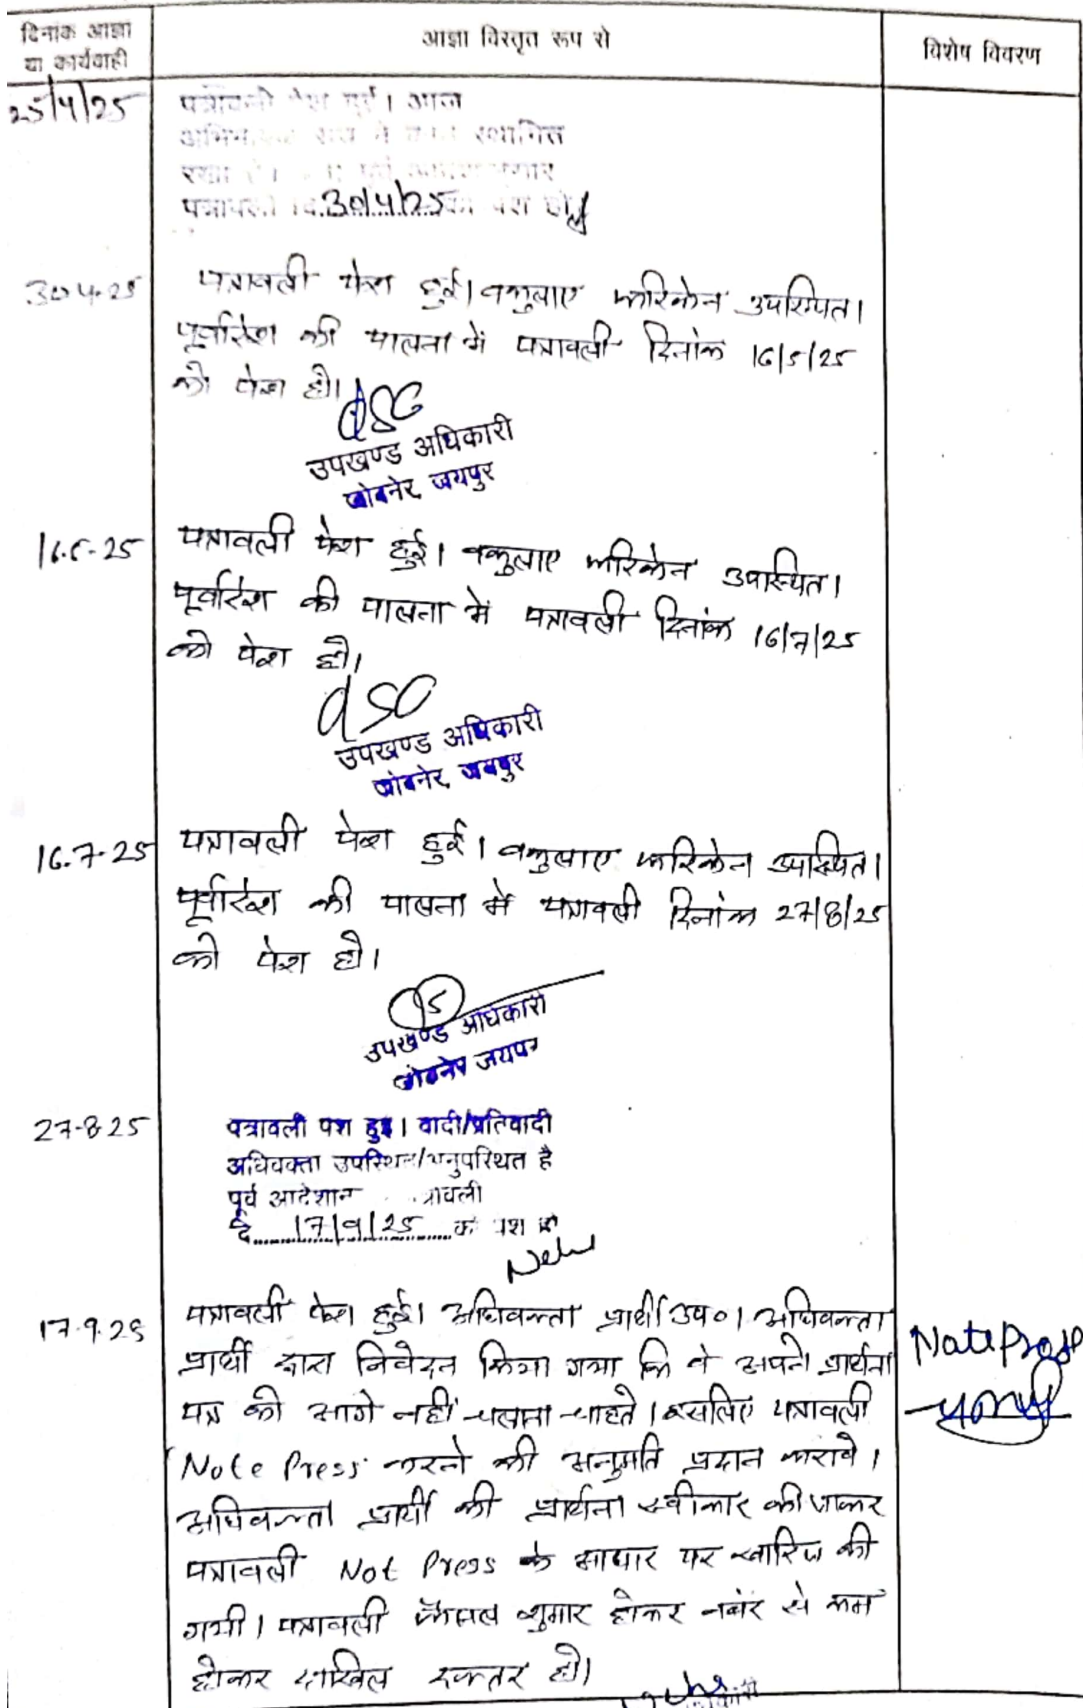 दिनांक आज्ञा
या कार्यवाही
आज्ञा विस्तृत रूप से
विशेष विवरण
25/4/25
पत्रावली पेश हुई। आज
स्थगित
पत्रावली दि. 30/4/25 को पेश हो
30-4-25
पत्रावली पेश हुई। वकुलाए फरिकेन उपस्थित।
पूर्वादेश की पालना में पत्रावली दिनांक 16/5/25
को पेश हो।
उपखण्ड अधिकारी
जोबनेर, जयपुर
16.5-25
पत्रावली पेश हुई। वकुलाए फरिकेन उपस्थित।
पूर्वादेश की पालना में पत्रावली दिनांक 16/7/25
को पेश हो।
उपखण्ड अधिकारी
जोबनेर, जयपुर
16.7-25
पत्रावली पेश हुई। वकुलाए फरिकेन उपस्थित।
पूर्वादेश की पालना में पत्रावली दिनांक 27/8/25
को पेश हो।
उपखण्ड अधिकारी
जोबनेर जयपुर
27-8-25
पत्रावली पेश हुई। वादी/प्रतिवादी
अधिवक्ता उपस्थित/अनुपस्थित है
पूर्व आदेशान पत्रावली
दि. 17/9/25 को पेश हो
17.9.25
पत्रावली पेश हुई। अधिवक्ता प्रार्थी उप०। अधिवक्ता
प्रार्थी द्वारा निवेदन किया गया कि वे अपने प्रार्थना
पत्र को आगे नहीं चलाना चाहते। इसलिए पत्रावली
Note Press करने की अनुमति प्रदान करावे।
अधिवक्ता प्रार्थी की प्रार्थना स्वीकार की जाकर
पत्रावली Not Press के आधार पर खारिज की
गयी। पत्रावली फैसल शुमार होकर नबंर से कम
होकर दाखिल दफ्तर हो।
Note Press